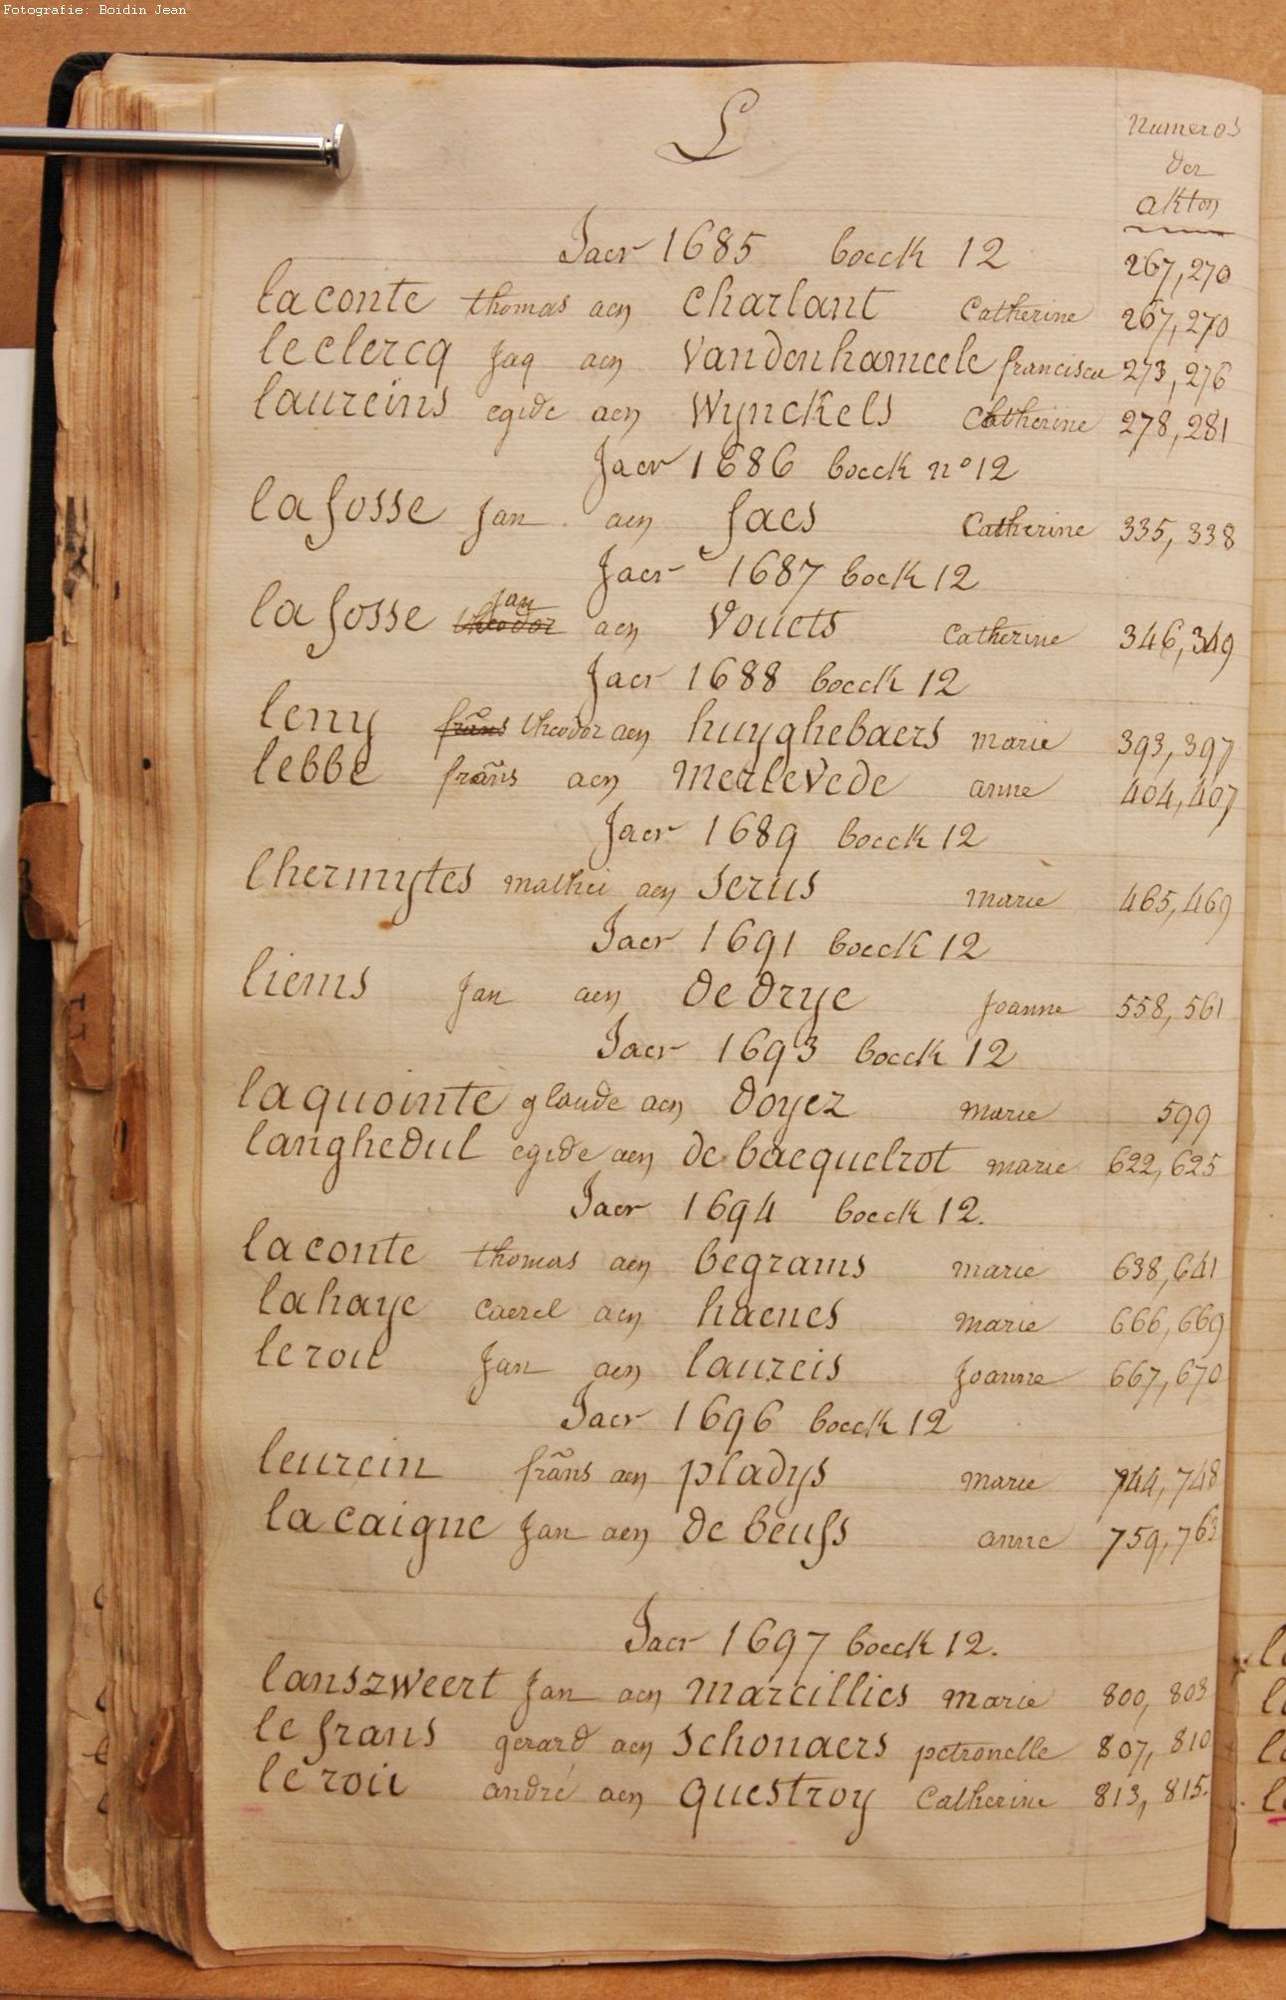 Fotografie: Boidin Jean
L
Numeros
der
akten
Jaer 1685 boeck 12 267,270
laconte thomas aen Charlant Catherine 267,270
leclercq Jaq aen Vandenhameele francisca 273,276
laureins egide aen Wynckels Catherine 278,281
Jaer 1686 boeck nº 12
lafosse Jan aen faes Catherine 335,338
Jaer 1687 boek 12
lafosse theodor Jan aen Vouets Catherine 346,349
Jaer 1688 boeck 12
leny frãns theodor aen huyghebaers marie 393,397
lebbe frãns aen Merlevede anne 404,407
Jaer 1689 boeck 12
lhermytes mathei aen Serus marie 465,469
Jaer 1691 boeck 12
liems Jan aen de drye Joanne 558,561
Jaer 1693 boeck 12
laquointe glaude aen doyez marie 599
langhedul egide aen de bacquelrot marie 622,625
Jaer 1694 boeck 12.
laconte thomas aen begrams marie 638,641
lahaye Caerel aen haenes marie 666,669
lerou Jan aen laureis Joanne 667,670
Jaer 1696 boeck 12
leurein frãns aen pladys marie 744,748
lacaigne Jan aen de beuss anne 759,763
Jaer 1697 boeck 12.
lanszweert Jan aen Marcillies marie 800, 803
lefrans gerard aen Schonaers petronelle 807, 810
leroii andré aen questroy Catherine 813, 815.